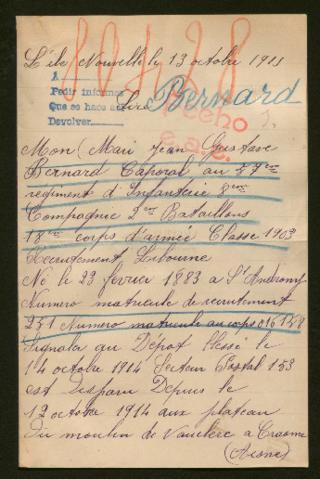 L'ile Nouvelle le 13 octobre 1911
A
Pedir informes
Que se haga
Devolver
Bernard
Mon Mari Jean Gustave
Bernard Caporal au 57me
regiment d'Infanterie 8me
Compagnie 2me Bataillons
18me corps d'armée Classe 1903
Recrutement Libourne
Né le 23 fevrier 1883 a St Androny
Numero matricule de recrutement
251 Numero matricule au corps 015158
Signala au Dépot blessé le
14 octobre 1914 Secteur Postal 153
est disparu Depuis le
12 octobre 1914 aux plateau
du moulin de Vauclere a Craonne
(Aisne)